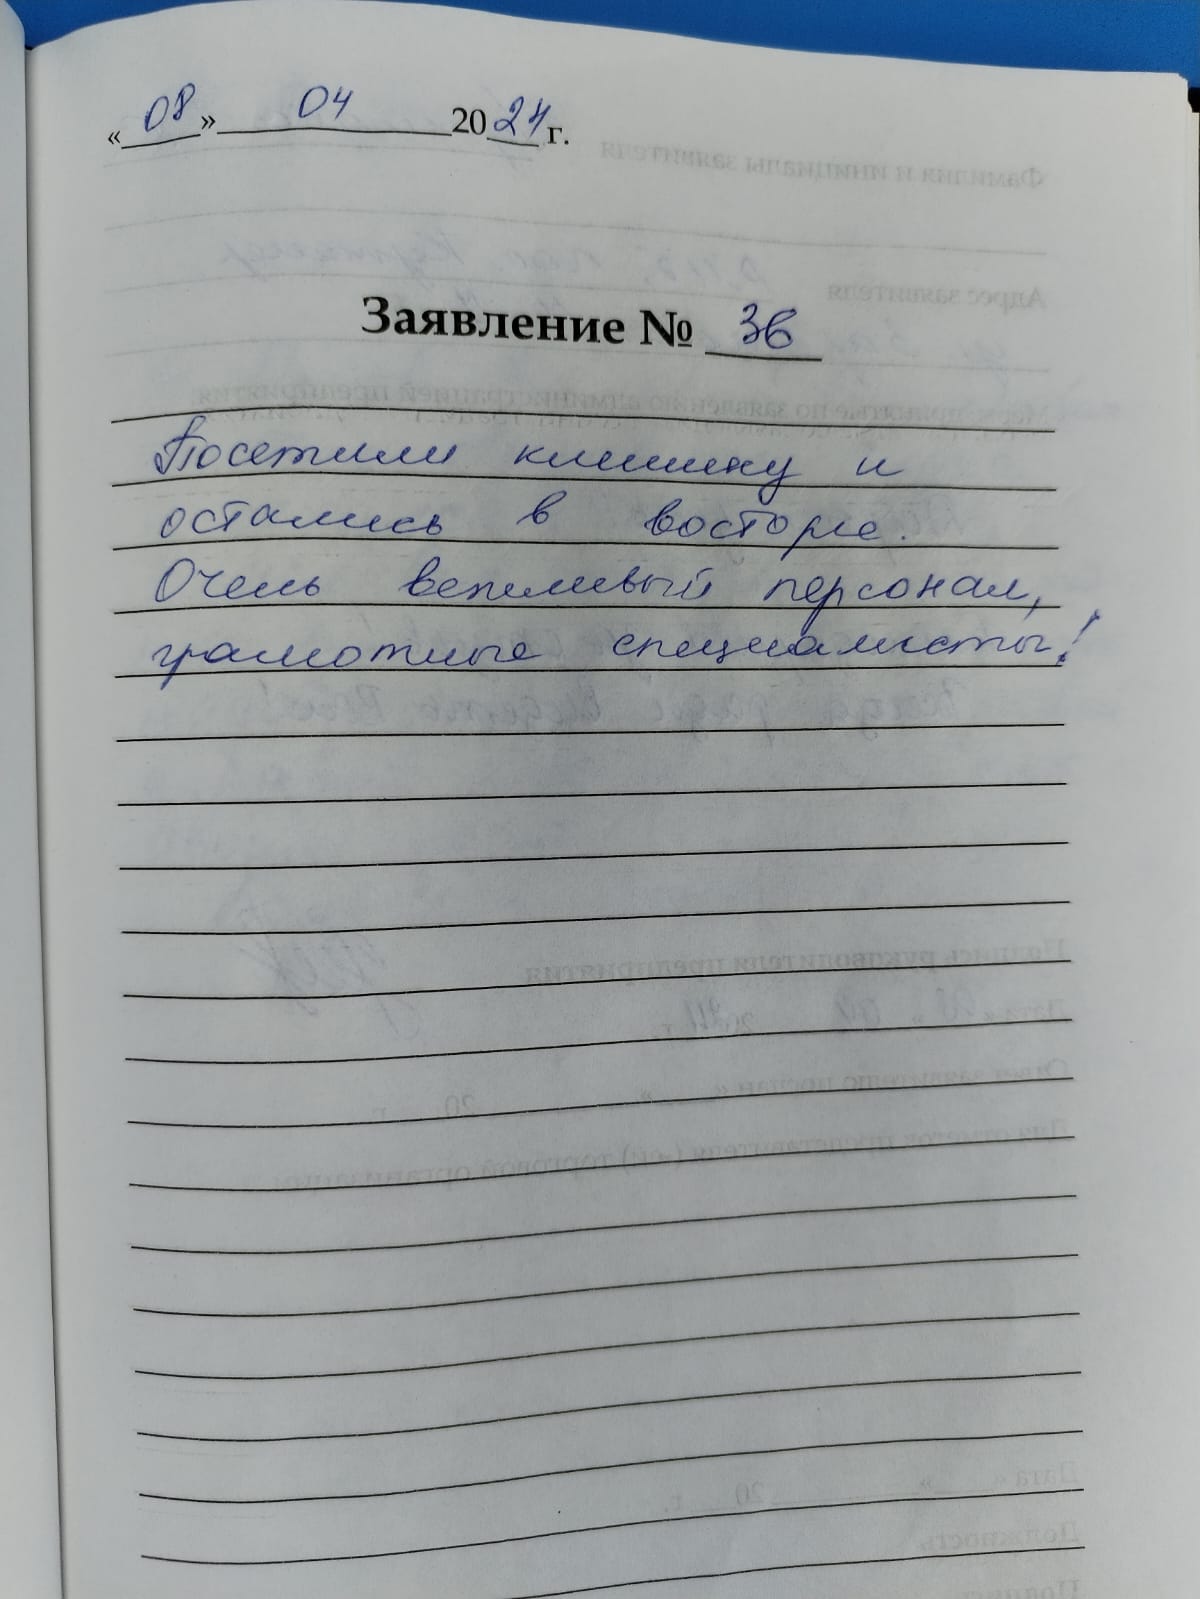 «08» 04 2024 г.
Заявление № 36
Посетили клинику и
остались в восторге.
Очень вежливый персонал,
грамотные специалисты!